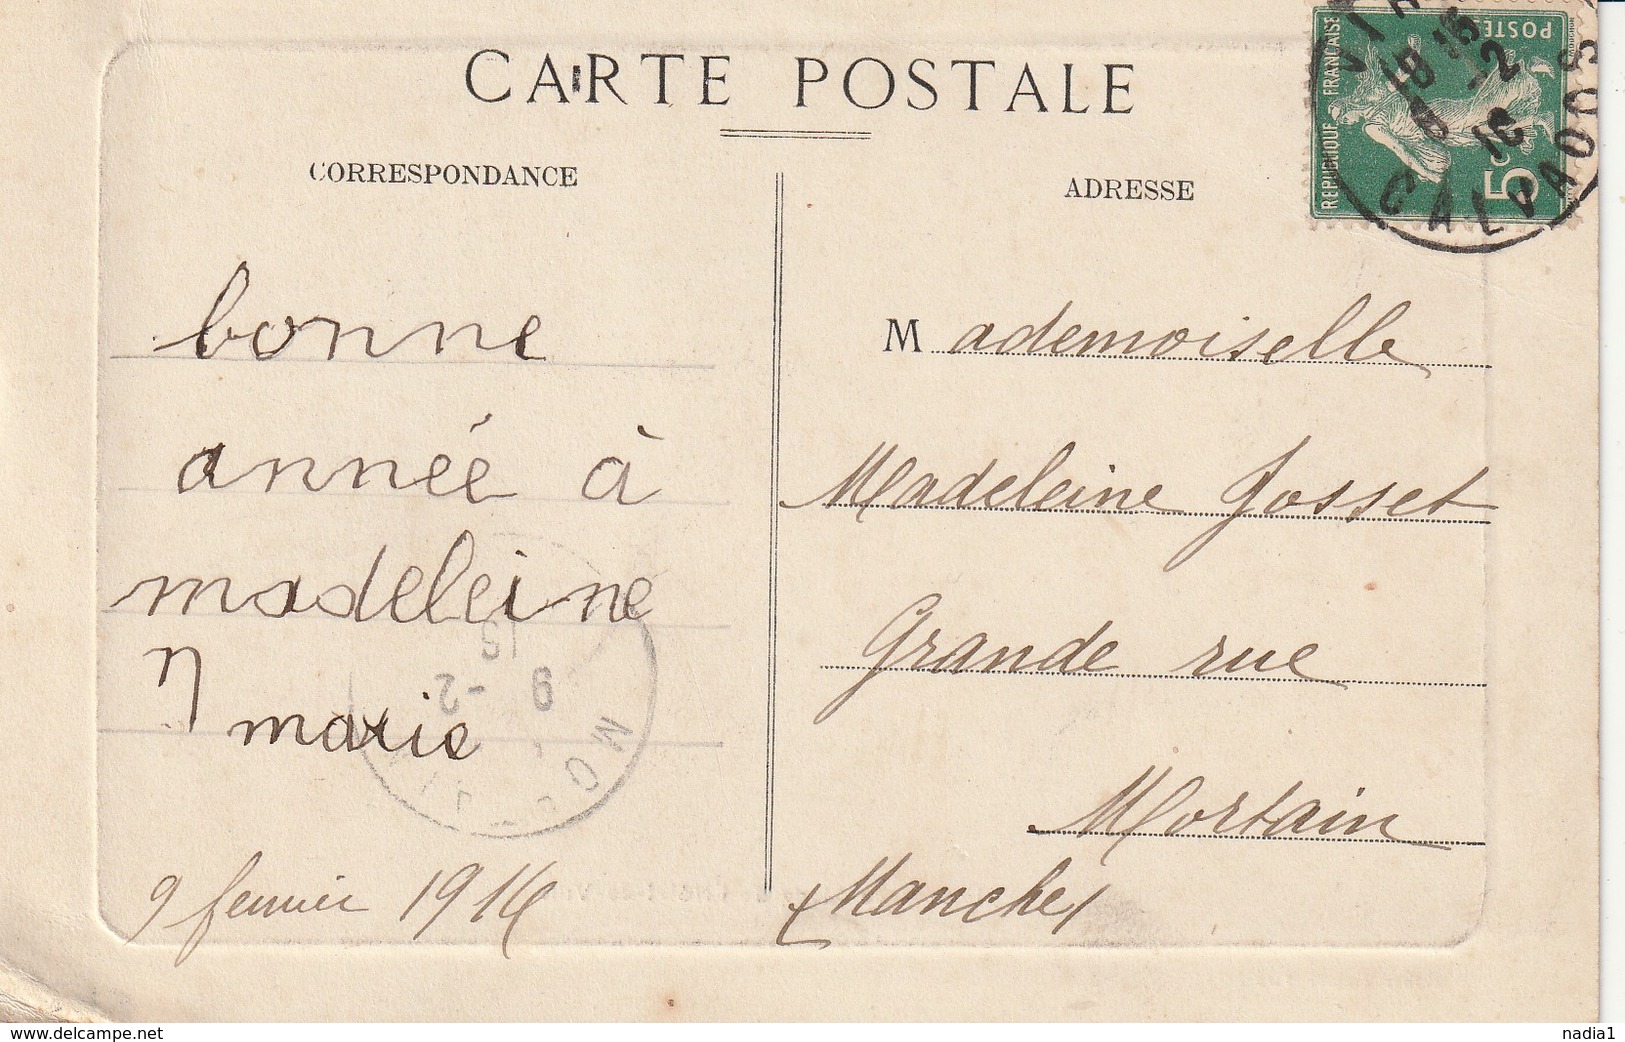 CARTE POSTALE
CORRESPONDANCE
ADRESSE
REPUBLIQUE FRANÇAISE
POSTES
5c
VIRE
18 15
8 -2
16
CALVADOS
bonne
année à
madeleine
marie
9 fevrier 1916
Mademoiselle
Madeleine Josset
Grande rue
Mortain
(Manche)
9 -2
delcampe.net
nadia1